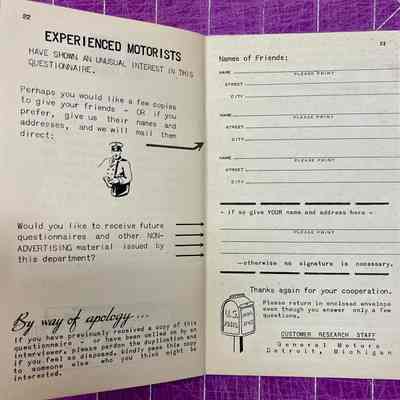 22
EXPERIENCED MOTORISTS
HAVE SHOWN AN UNUSUAL INTEREST IN THIS
QUESTIONNAIRE.
Perhaps you would like a few copies
to give your friends - OR if you
prefer, give us their names and
addresses, and we will mail them
direct:
Would you like to receive future
questionnaires and other NON-
ADVERTISING material issued by
this department?
By way of apology...
If you have previously received a copy of this
questionnaire - or have been called on by an
interviewer, please pardon the duplication and
if you feel so disposed, kindly pass this copy
to someone else who you think might be
interested.
23
Names of Friends:
NAME
PLEASE PRINT
STREET
CITY
NAME
PLEASE PRINT
STREET
CITY
NAME
PLEASE PRINT
STREET
CITY
- if so give YOUR name and address here -
PLEASE PRINT
-otherwise no signature is necessary.
Thanks again for your cooperation.
Please return in enclosed envelope
even though you answer only a few
questions.
U.S.
MAIL
CUSTOMER RESEARCH STAFF
General Motors
Detroit, Michigan